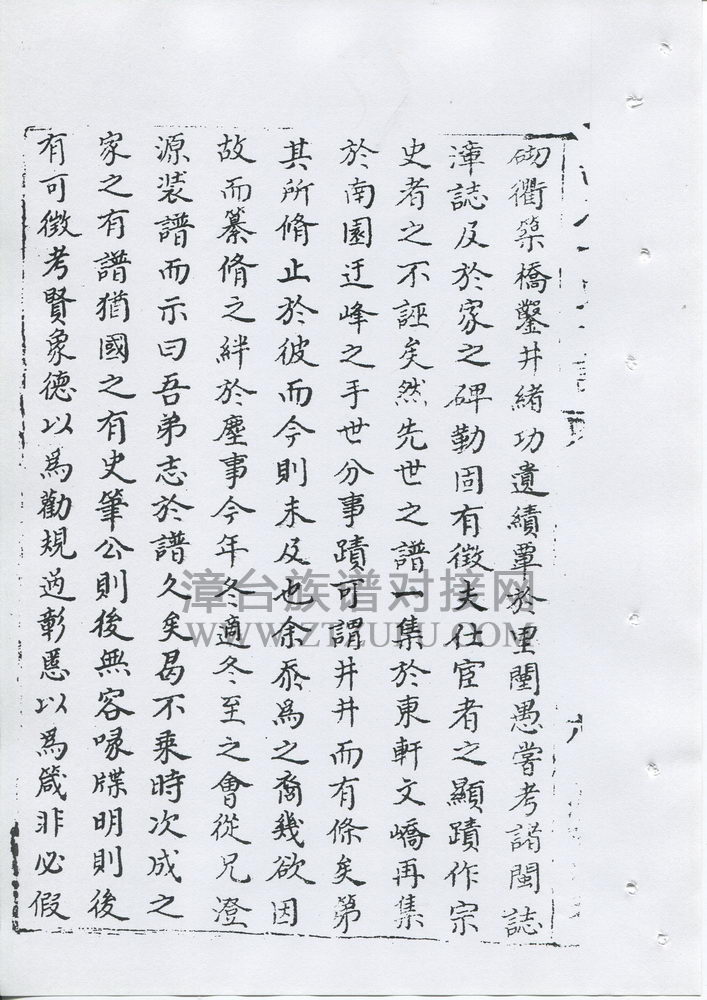 砌衢築橋鑿井緒功遺績覃於里閭愚嘗考諸閩誌
漳誌及於家之碑勒固有徵夫仕宦者之顯蹟作宗
史者之不誣矣然先世之譜一集於東軒文嶠再集
於南園迂峰之手世分事蹟可謂井井而有條矣第
其所脩止於彼而今則未及也余忝為之裔幾欲因
故而纂脩之絆於塵事今年冬適冬至之會從兄澄
源裝譜而示曰吾弟志於譜久矣曷不乘時次成之
家之有譜猶國之有史筆公則後無容喙牒明則後
有可徵考賢象德以為勸規過彰惡以為箴非必假
漳台族谱对接网
WWW.ZTZUPU.COM